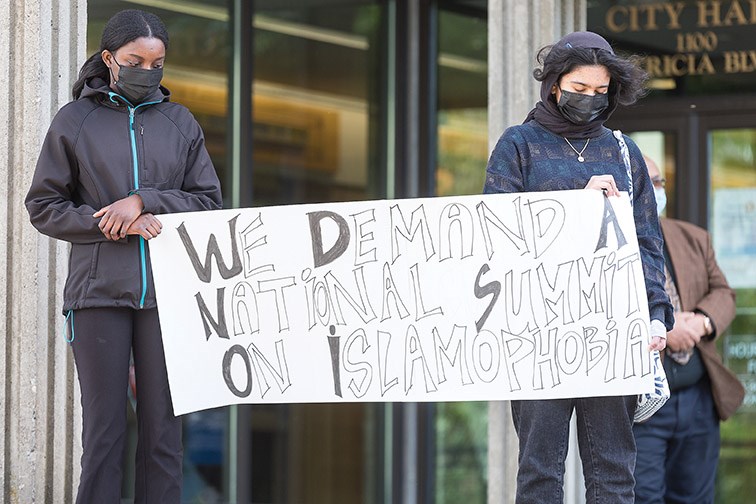 CITY HAL
1100
TRICIA BLV
WE DEMAND A
NATIONAL SUMMIT
ON ISLAMOPHOBIA